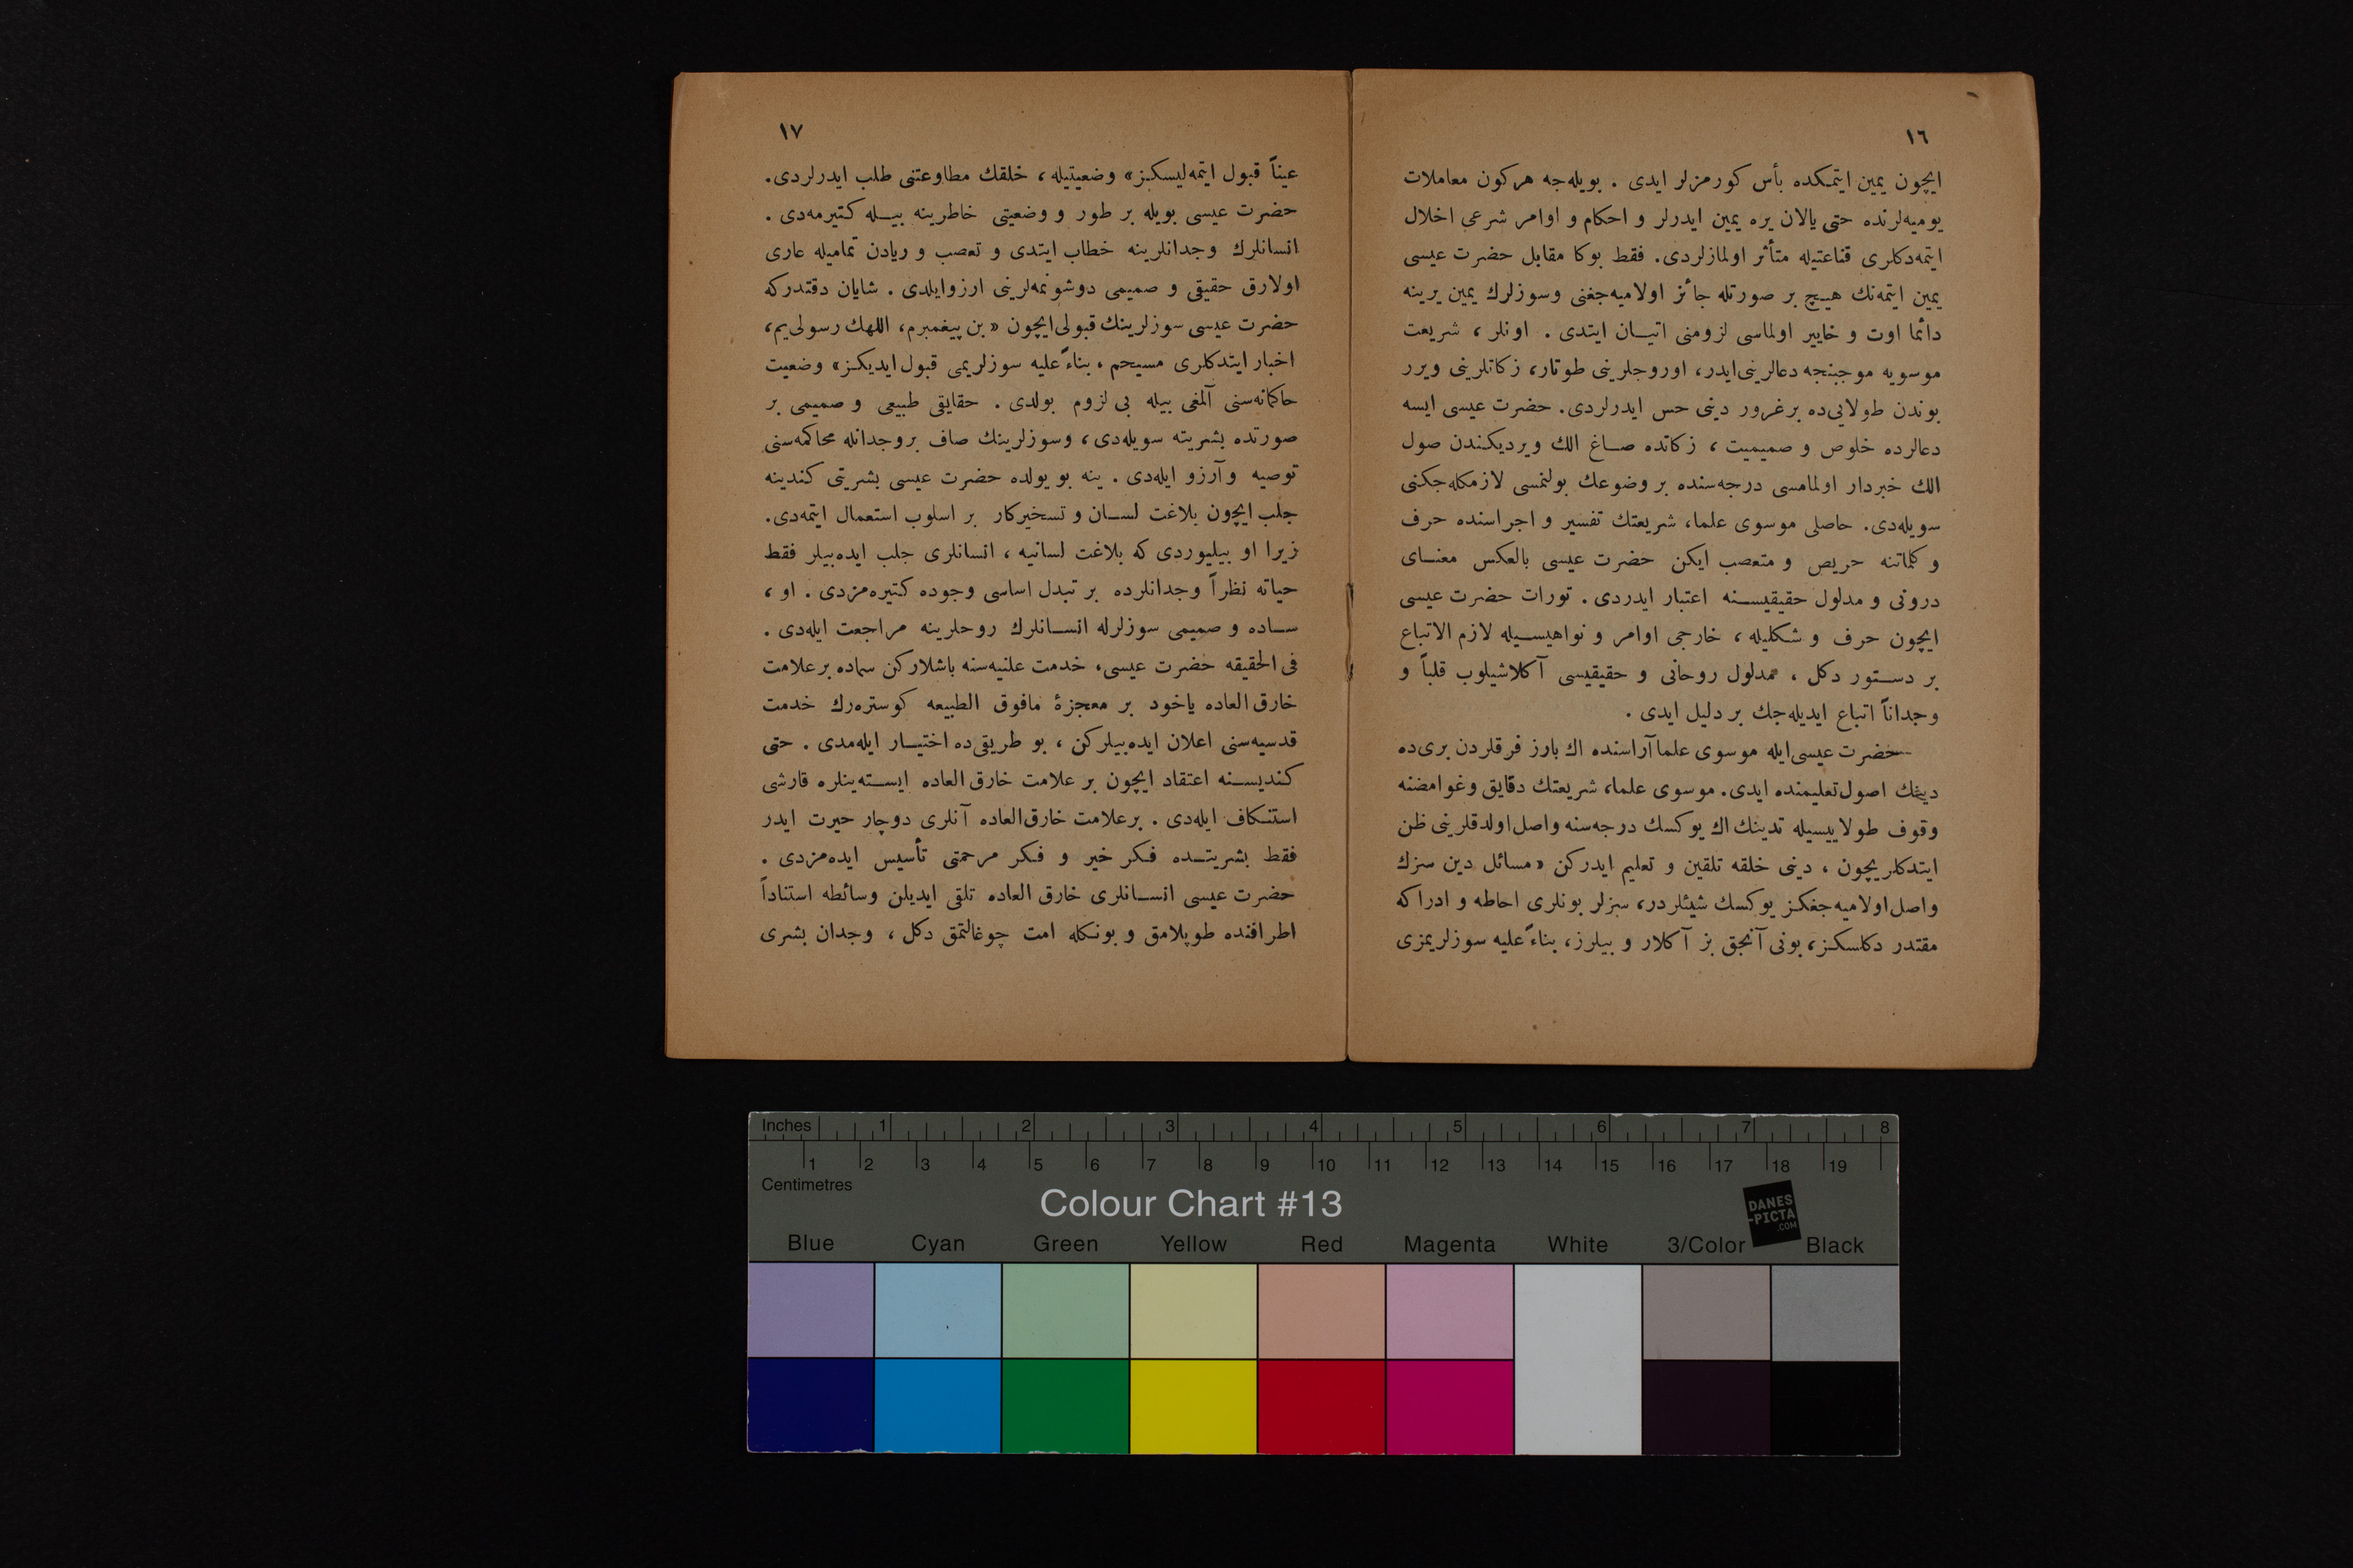 ١٦
ایچون یمین ایتمكده بأس كورمزلر ایدی . بویله‌جه هركون معاملات
یومیه‌لرنده حتی یالان یره یمین ایدرلر و احكام و اوامر شرعی اخلال
ایتمه‌دكلری قناعتیله متأثر اولمازلردی. فقط بوكا مقابل حضرت عیسی
یمین ایتمه‌نك هیچ بر صورتله جائز اولامیه‌جغنی وسوزلرك یمین یرینه
دائما اوت و خایر اولماسی لزومنی اتیان ایتدی . اونلر ، شریعت
موسویه موجبنجه دعالرینی ایدر، اوروجلرینی طوتار، زكاتلرینی ویرر
بوندن طولایی‌ده برغرور دینی حس ایدرلردی. حضرت عیسی ایسه
دعالرده خلوص و صمیمیت ، زكاتده صاغ الك ویردیكندن صول
الك خبردار اولمامسی درجه‌سنده بر وضوعك بولنمسی لازمكله‌جكنی
سویله‌دی. حاصلی موسوی علما، شریعتك تفسیر و اجراسنده حرف
و كلماتنه حریص و متعصب ایكن حضرت عیسی بالعكس معنای
درونی و مدلول حقیقیسنه اعتبار ایدردی . تورات حضرت عیسی
ایچون حرف و شكلیله ، خارجی اوامر و نواهیسیله لازم الاتباع
بر دستور دكل ، مدلول روحانی و حقیقیسی آكلاشیلوب قلباً و
وجداناً اتباع ایدیله‌جك بر دلیل ایدی .
حضرت عیسی ایله موسوی علما آراسنده اك بارز فرقلردن بری‌ده
دینك اصول تعلیمنده ایدی. موسوی علما، شریعتك دقایق وغوامضنه
وقوف طولاییسیله تدینك اك یوكسك درجه‌سنه واصل اولدقلرینی ظن
ایتدكلریچون ، دینی خلقه تلقین و تعلیم ایدركن « مسائل دین سزك
واصل اولامیه‌جغكز یوكسك شیئلردر، سزلر بونلری احاطه و ادراكه
مقتدر دكلسكز، بونی آنجق بز آكلار و بیلرز، بناءً علیه سوزلریمزی
١٧
عیناً قبول ایتمه‌لیسكز» وضعیتیله ، خلقك مطاوعتنی طلب ایدرلردی.
حضرت عیسی بویله بر طور و وضعیتی خاطرینه بیله كتیرمه‌دی .
انسانلرك وجدانلرینه خطاب ایتدی و تعصب و ریادن تمامیله عاری
اولارق حقیقی و صمیمی دوشونمه‌لرینی ارزوایلدی . شایان دقتدركه
حضرت عیسی سوزلرینك قبولی ایچون « بن پیغمبرم، اللهك رسولی‌یم،
اخبار ایتدكلری مسیحم ، بناءً علیه سوزلریمی قبول ایدیكز» وضعیت
حاكمانه‌سنی آلمغی بیله بی لزوم بولدی . حقایقی طبیعی و صمیمی بر
صورتده بشریته سویله‌دی، وسوزلرینك صاف بروجدانله محاكمه‌سنی
توصیه وآرزو ایله‌دی . ینه بو یولده حضرت عیسی بشریتی كندینه
جلب ایچون بلاغت لسان و تسخیركار بر اسلوب استعمال ایتمه‌دی.
زیرا او بیلیوردی كه بلاغت لسانیه ، انسانلری جلب ایده‌بیلر فقط
حیاته نظراً وجدانلرده بر تبدل اساسی وجوده كتیره‌مزدی . او ،
ساده و صمیمی سوزلرله انسانلرك روحلرینه مراجعت ایله‌دی .
فی الحقیقه حضرت عیسی، خدمت علنیه‌سنه باشلاركن سماده برعلامت
خارق العاده یاخود بر معجزۀ مافوق الطبیعه كوستره‌رك خدمت
قدسیه‌سنی اعلان ایده‌بیلركن ، بو طریقی‌ده اختیار ایله‌مدی . حتی
كندیسنه اعتقاد ایچون بر علامت خارق العاده ایسته‌ینلره قارشی
استنكاف ایله‌دی . برعلامت خارق‌العاده آنلری دوچار حیرت ایدر
فقط بشریتده فكر خیر و فكر مرحمتی تأسیس ایده‌مزدی .
حضرت عیسی انسانلری خارق العاده تلقی ایدیلن وسائطه استناداً
اطرافنده طوپلامق و بونكله امت چوغالتمق دكل ، وجدان بشری
Inches 1 2 3 4 5 6 7 8
1 2 3 4 5 6 7 8 9 10 11 12 13 14 15 16 17 18 19
Centimetres
Colour Chart #13
DANES
-PICTA
.COM
Blue Cyan Green Yellow Red Magenta White 3/Color Black